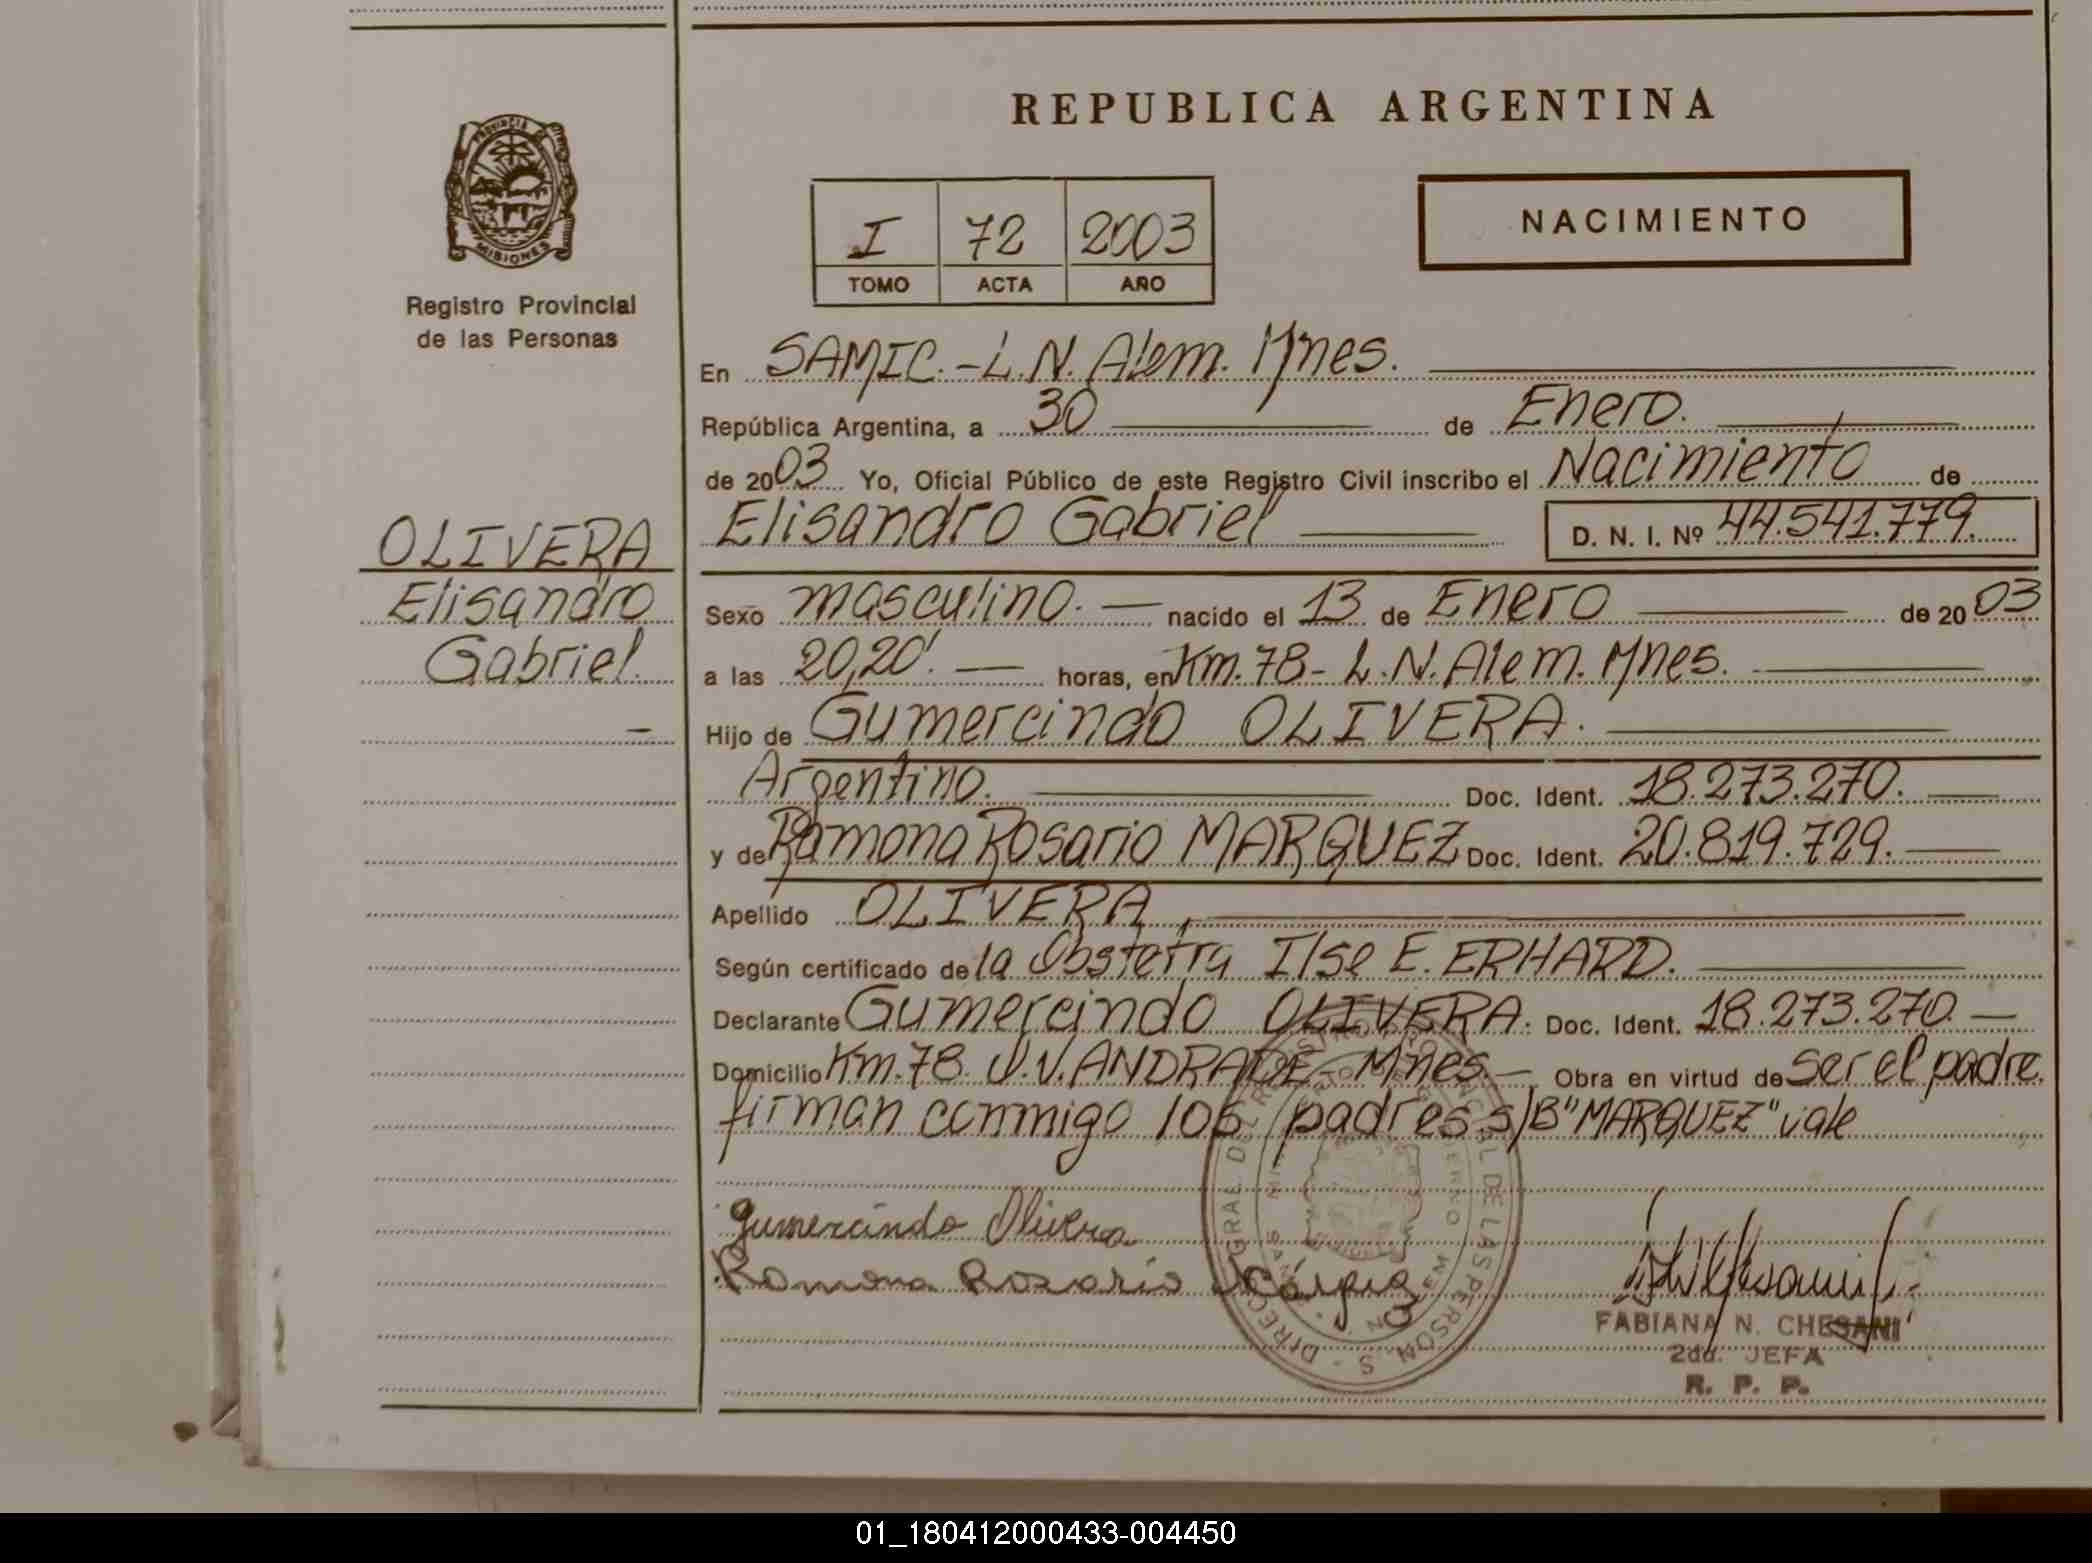 REPUBLICA ARGENTINA
PROVINCIA DE
MISIONES
Registro Provincial
de las Personas
I 72 2003
TOMO ACTA AÑO
NACIMIENTO
En SAMIC.-L.N. Alem. Mnes.
República Argentina, a 30 de Enero.
de 2003 Yo, Oficial Público de este Registro Civil inscribo el Nacimiento de
Elisandro Gabriel D. N. I. Nº 44.541.779.
OLIVERA
Elisandro
Gabriel.
Sexo masculino. nacido el 13 de Enero de 2003
a las 20,20'. horas, en Km.78- L.N.Alem. Mnes.
Hijo de Gumercindo OLIVERA.
Argentino. Doc. Ident. 18.273.270.
y de Ramona Rosario MARQUEZ Doc. Ident. 20.819.729.
Apellido OLIVERA,
Según certificado de la Obstetra Ilse E. ERHARD.
Declarante Gumercindo OLIVERA. Doc. Ident. 18.273.270.
Domicilio Km.78. V.V.ANDRADE- Mnes.- Obra en virtud de ser el padre.
firman conmigo los padres. s/B "MARQUEZ" vale
Gumercindo Olivera
Ramona Rosario
FABIANA N. CHESANI
2da. JEFA
R. P. P.
01_180412000433-004450